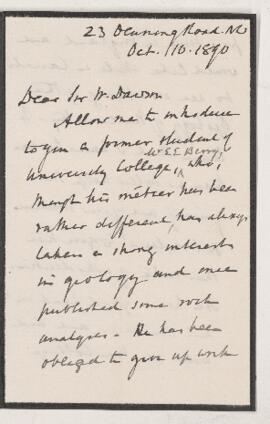 23 Denning Road. NW
Oct. 10. 1890
Dear Sir W. Dawson
Allow me to introduce
to you a former student of
Mr E E Berry,
University College, who,
though his métier has been
rather different, has always
taken a strong interest
in geology and once
published some rock
analyses. He has been
obliged to give up work